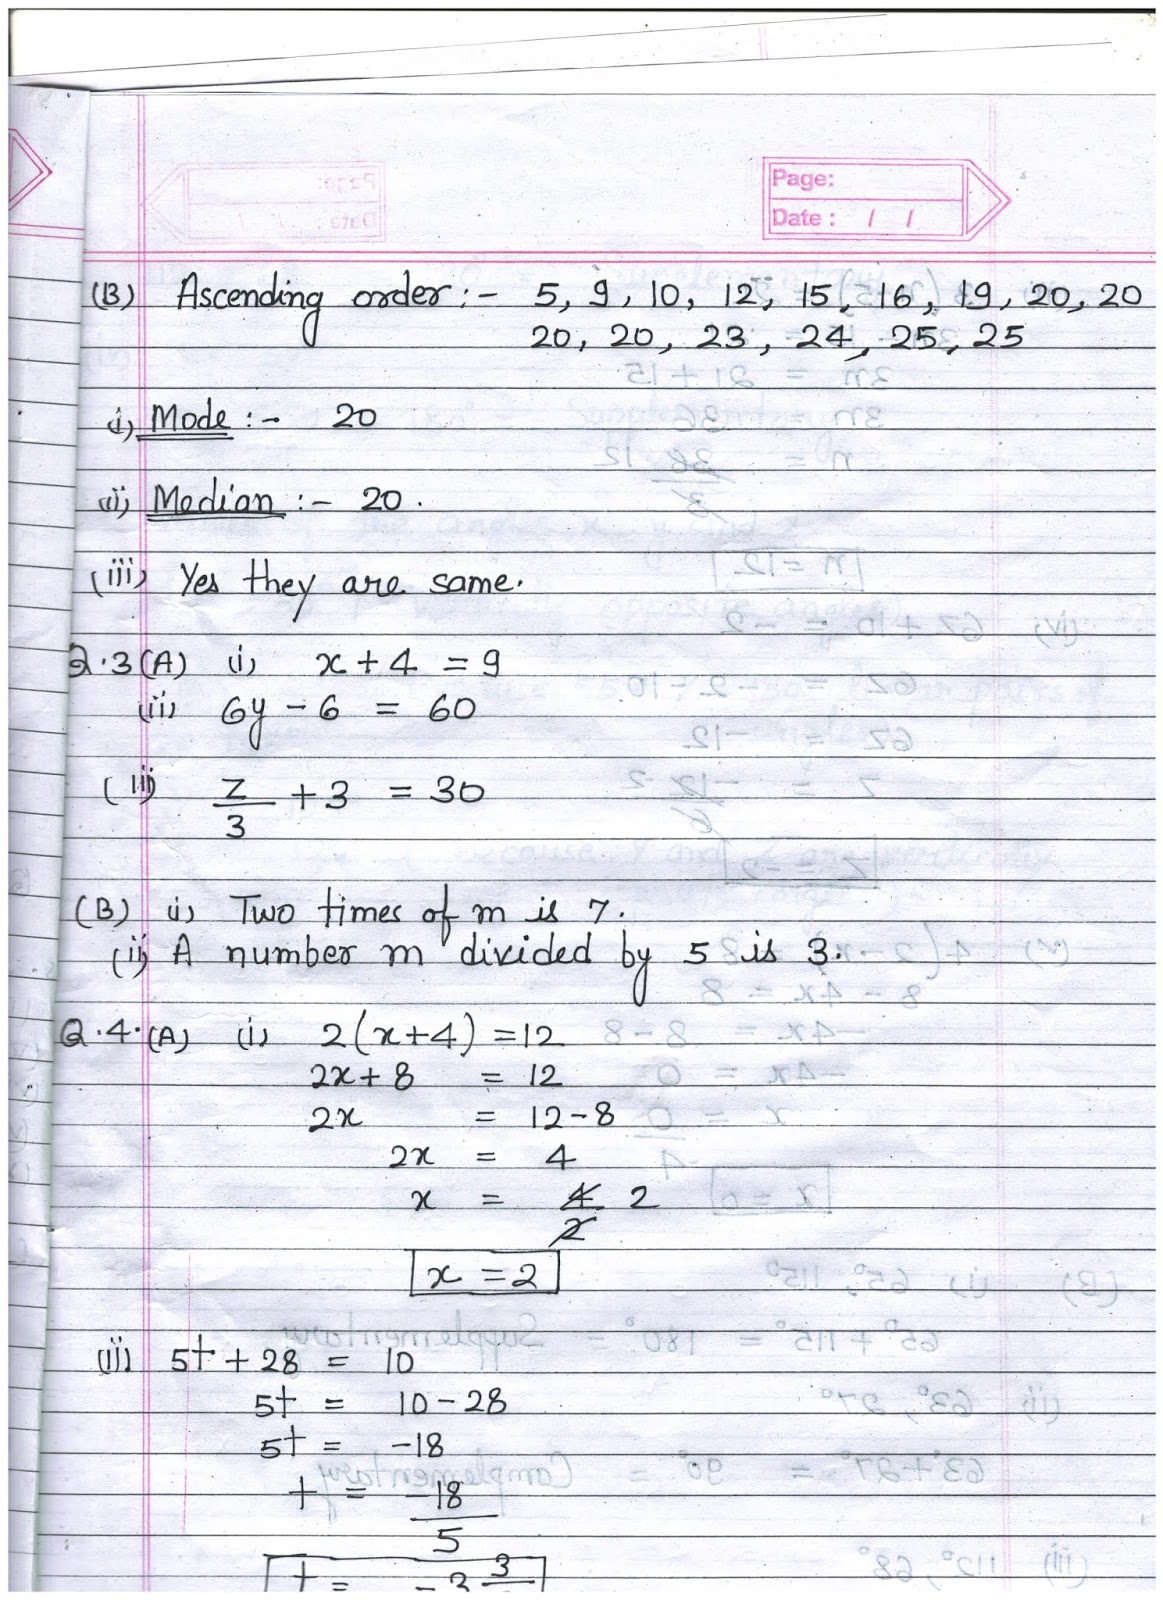 Page:
Date : / /
(B) Ascending order :- 5, 9, 10, 12, 15, 16, 19, 20, 20
20, 20, 23, 24, 25, 25
i) Mode :- 20
(ii) Median :- 20.
(iii) Yes they are same.
Q.3 (A) (i) x + 4 = 9
(ii) 6y - 6 = 60
(iii) z/3 + 3 = 30
(B) i) Two times of m is 7.
(ii) A number m divided by 5 is 3.
Q.4. (A) (i) 2(x+4) = 12
2x + 8 = 12
2x = 12 - 8
2x = 4
x = 4/2 2
x = 2
(ii) 5t + 28 = 10
5t = 10 - 28
5t = -18
t = -18/5
t = -3 3